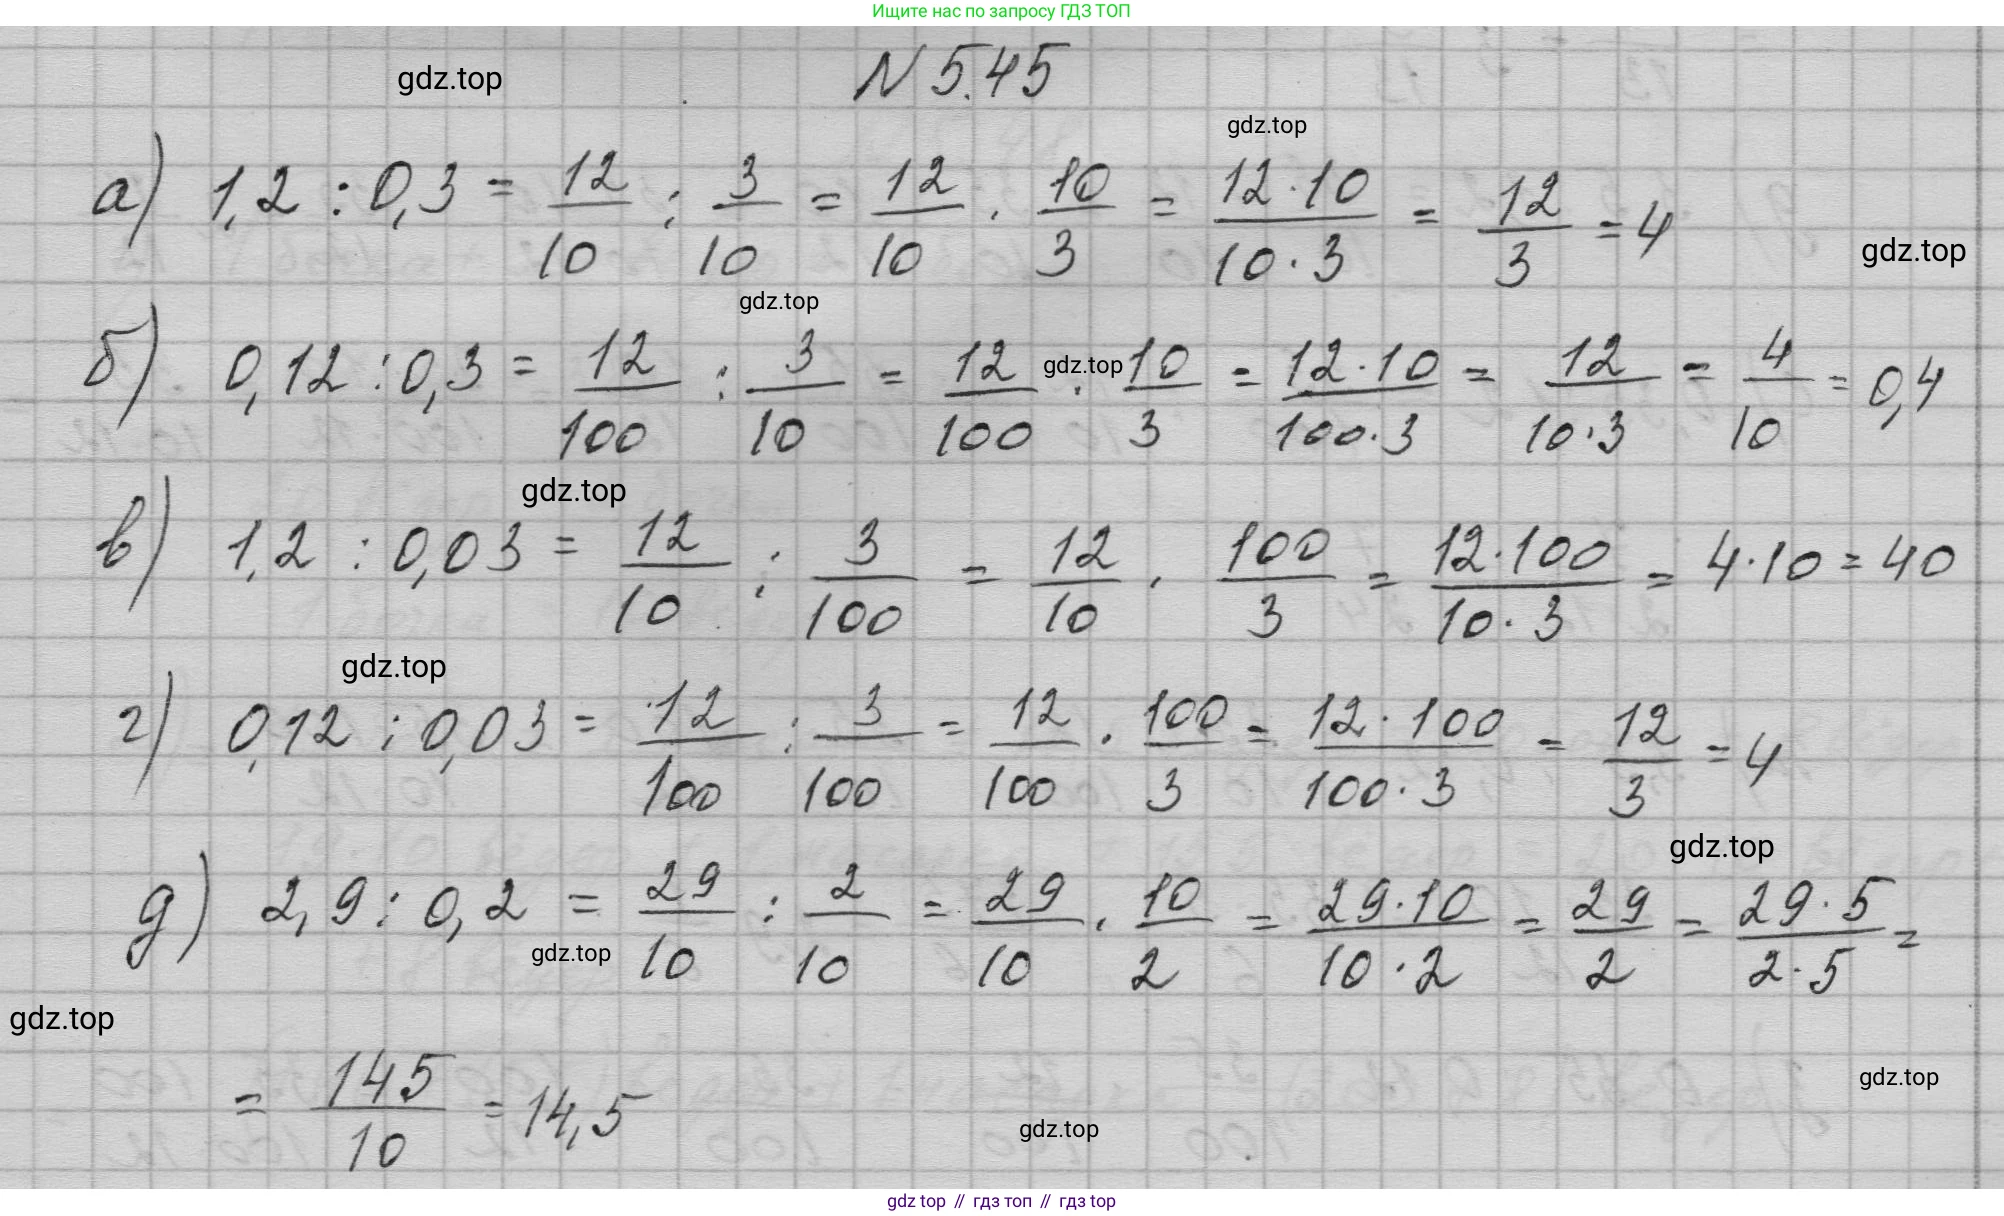 Ищите нас по запросу ГДЗ ТОП
N 5.45
gdz.top
gdz.top
а) 1,2 : 0,3 = 12/10 : 3/10 = 12/10 · 10/3 = 12·10/10·3 = 12/3 = 4
gdz.top
gdz.top
б) 0,12 : 0,3 = 12/100 : 3/10 = 12/100 · 10/3 = 12·10/100·3 = 12/10·3 = 4/10 = 0,4
gdz.top
gdz.top
в) 1,2 : 0,03 = 12/10 : 3/100 = 12/10 · 100/3 = 12·100/10·3 = 4·10 = 40
gdz.top
г) 0,12 : 0,03 = 12/100 : 3/100 = 12/100 · 100/3 = 12·100/100·3 = 12/3 = 4
gdz.top
д) 2,9 : 0,2 = 29/10 : 2/10 = 29/10 · 10/2 = 29·10/10·2 = 29/2 = 29·5/2·5 =
gdz.top
gdz.top
= 145/10 = 14,5
gdz.top
gdz.top
gdz top // гдз топ // гдз top